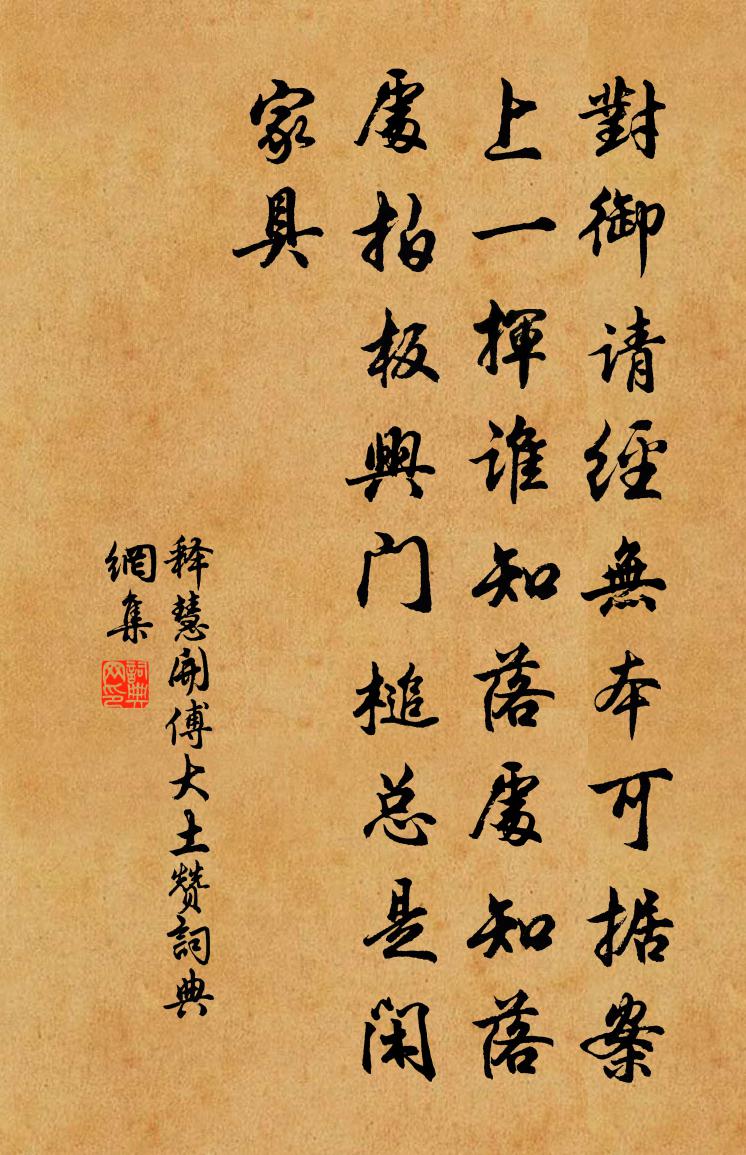 對御请經無本可据案
上一揮谁知落處知落
處拍板興门槌总是闲
家具
释慧開傅大土赞詞典
網集
詞典
网印